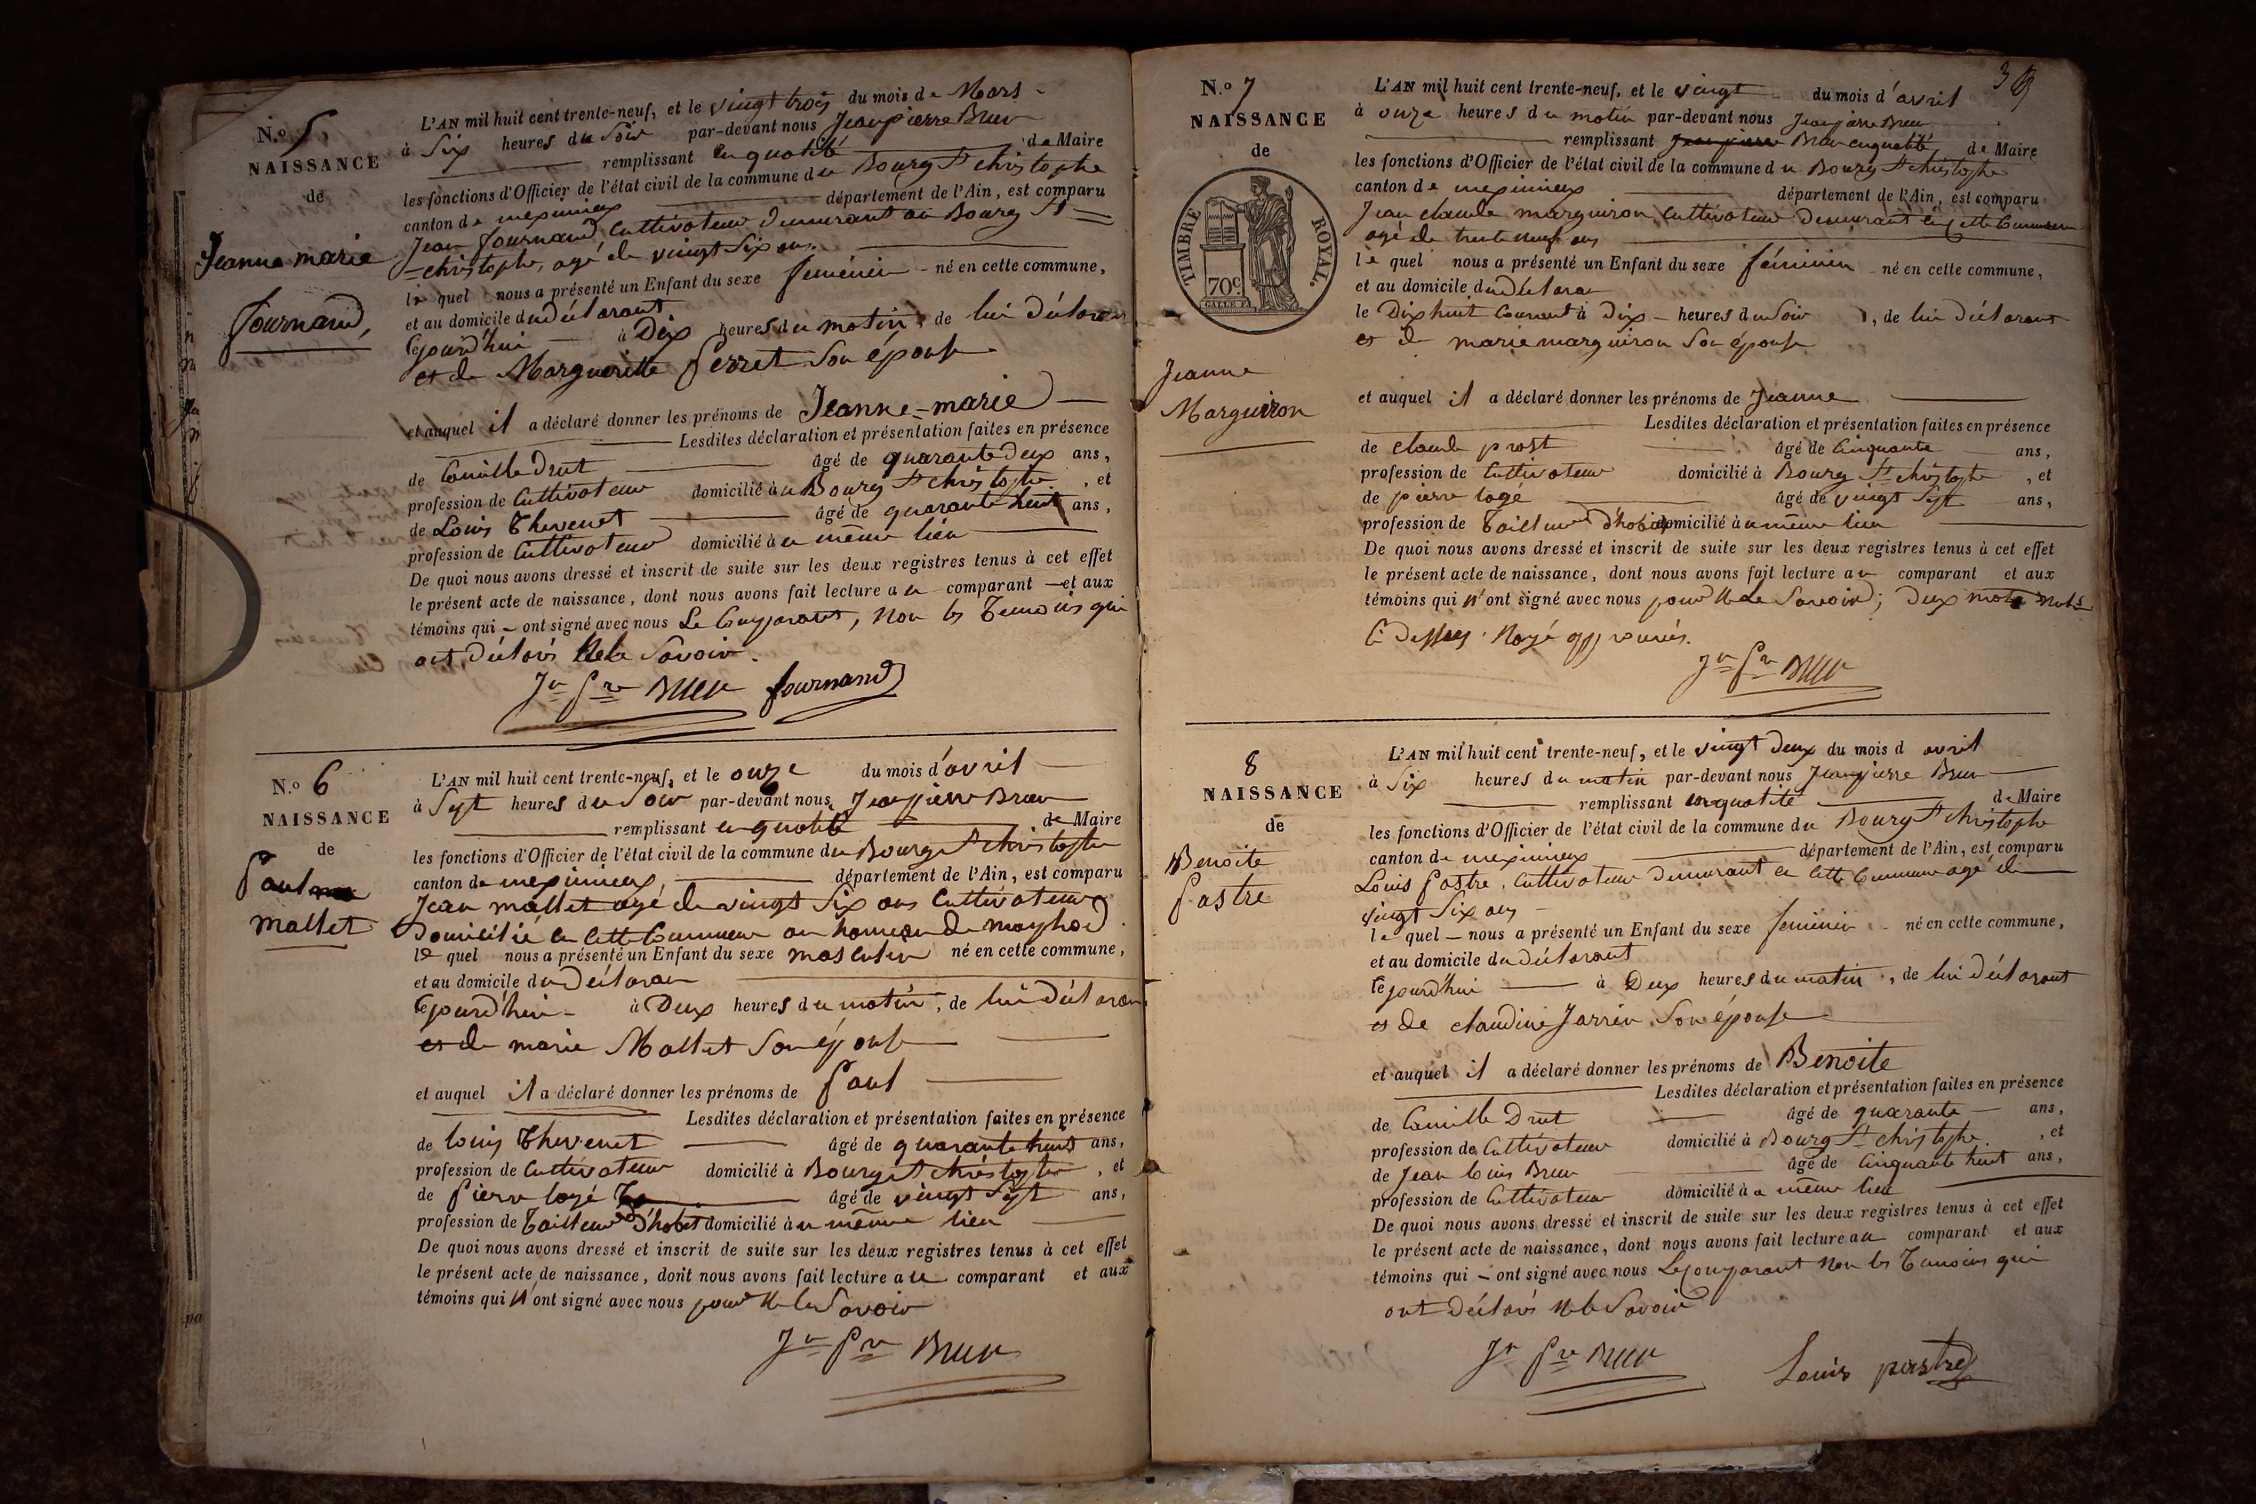 N.o 5
NAISSANCE
de
Jeanne marie
fournand,
L'AN mil huit cent trente-neuf, et le vingt trois du mois de Mars
à Six heures du Soir par-devant nous Jeanpierre Brun
remplissant en qualité de Maire
les fonctions d'Officier de l'état civil de la commune du Bourg St christophe
canton de meximieux département de l'Ain, est comparu
Jean fournand Cultivateur demeurant au Bourg St
christophe, agé de vingt Six ans.
le quel nous a présenté un Enfant du sexe féménin né en cette commune,
et au domicile du déclarant
cejourd'hui à Dix heures du matin, de lui déclarant
et de Margueritte ferret Son épouse
et auquel il a déclaré donner les prénoms de Jeanne-marie
Lesdites déclaration et présentation faites en présence
de Camille Drut âgé de quarante deux ans,
profession de Cultivateur domicilié à u Bourg St christophe, et
de Louis Thevenet âgé de quarante huit ans,
profession de Cultivateur domicilié à u même lieu
De quoi nous avons dressé et inscrit de suite sur les deux registres tenus à cet effet
le présent acte de naissance, dont nous avons fait lecture au comparant et aux
témoins qui ont signé avec nous Le Comparant, Non les Temoins qui
ont déclarés Ne le Savoir.
Jn Pre Brun fournand
N.o 6
NAISSANCE
de
Paul
mallet
L'AN mil huit cent trente-neuf, et le onze du mois d'avril
à Sept heures du Soir par-devant nous Jeanpierre Brun
remplissant en qualité de Maire
les fonctions d'Officier de l'état civil de la commune du Bourg St christophe
canton de meximieux département de l'Ain, est comparu
Jean mallet agé de vingt Six ans Cultivateur
Domicilié en cette Commune au hameau de
le quel nous a présenté un Enfant du sexe masculin né en cette commune,
et au domicile du Déclaran
cejourd'hui à Deux heures du matin, de lui déclaran
et de marie Mallet Son épouse
et auquel il a déclaré donner les prénoms de Paul
Lesdites déclaration et présentation faites en présence
de louis Thevenet âgé de quarante huit ans,
profession de Cultivateur domicilié à Bourg St christophe, et
de Pierre logé âgé de vingt Sept ans,
profession de Tailleur d'habit domicilié à u même lieu
De quoi nous avons dressé et inscrit de suite sur les deux registres tenus à cet effet
le présent acte de naissance, dont nous avons fait lecture au comparant et aux
témoins qui n'ont signé avec nous pour Ne le Savoir
Jn Pre Brun
39
N.o 7
NAISSANCE
de
TIMBRE ROYAL.
70c.
Jeanne
Marguiron
L'AN mil huit cent trente-neuf, et le vingt du mois d'avril
à onze heures du matin par-devant nous Jeanpierre Brun
remplissant Jeanpierre Brun enqualité de Maire
les fonctions d'Officier de l'état civil de la commune du Bourg St christophe
canton de meximieux département de l'Ain, est comparu
Jean claude marguiron, Cultivateur demeurant en cette Commune
agé de trente neuf ans
le quel nous a présenté un Enfant du sexe féminin né en cette commune,
et au domicile du déclaran
le Dix huit Courant à Dix heures du Soir, de lui déclarant
et de marie marguiron Son épouse
et auquel il a déclaré donner les prénoms de Jeanne
Lesdites déclaration et présentation faites en présence
de claude prost âgé de Cinquante ans,
profession de Cultivateur domicilié à Bourg St christophe, et
de pierre logé âgé de vingt Sept ans,
profession de Tailleur d'habit domicilié à u même lieu
De quoi nous avons dressé et inscrit de suite sur les deux registres tenus à cet effet
le présent acte de naissance, dont nous avons fait lecture au comparant et aux
témoins qui n'ont signé avec nous pour Ne le Savoir; Deux mots
Ci Dessus Rayé approuvés.
Jn Pre Brun
8
NAISSANCE
de
Benoite
Pastre
L'AN mil huit cent trente-neuf, et le vingt deux du mois d avril
à Six heures du matin par-devant nous Jeanpierre Brun
remplissant en qualité de Maire
les fonctions d'Officier de l'état civil de la commune du Bourg St christophe
canton de meximieux département de l'Ain, est comparu
Louis Pastre, Cultivateur demeurant en cette Commune agé de
vingt Six ans
le quel nous a présenté un Enfant du sexe feminin né en cette commune,
et au domicile du déclarant
cejourd'hui à Deux heures du matin, de lui déclarant
et de claudine Jarrin Son épouse
et auquel il a déclaré donner les prénoms de Benoite
Lesdites déclaration et présentation faites en présence
de Camille Drut âgé de quarante ans,
profession de Cultivateur domicilié à Bourg St christophe, et
de Jean louis Brun âgé de Cinquante huit ans,
profession de Cultivateur domicilié à u même lieu
De quoi nous avons dressé et inscrit de suite sur les deux registres tenus à cet effet
le présent acte de naissance, dont nous avons fait lecture au comparant et aux
témoins qui ont signé avec nous Le Comparant Non les Temoins qui
ont Déclarés Ne le Savoir
Jn Pre Brun Louis pastre